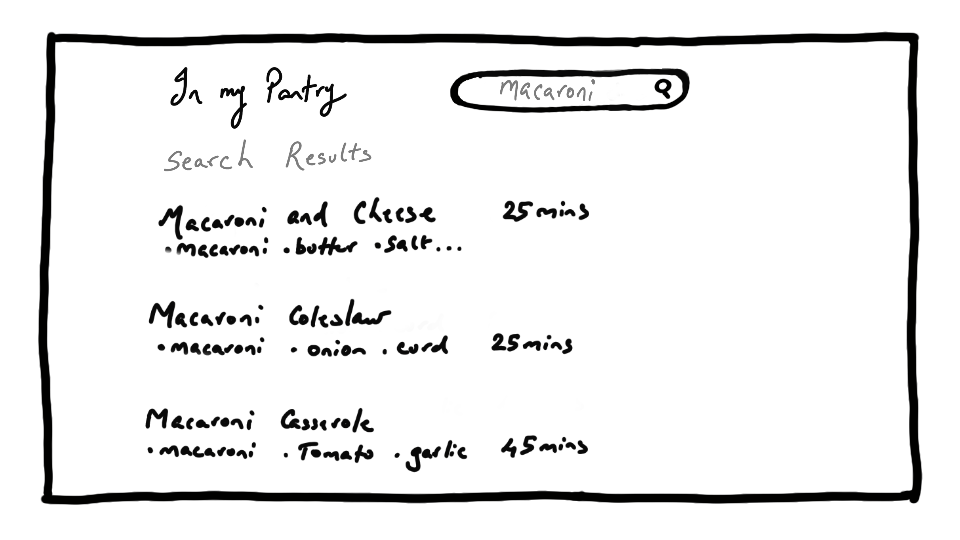 In my Pantry
Macaroni
Search Results
Macaroni and Cheese 25 mins
• macaroni • butter • salt...
Macaroni Coleslaw
• macaroni • onion • curd 25 mins
Macaroni Casserole
• macaroni • Tomato • garlic 45 mins